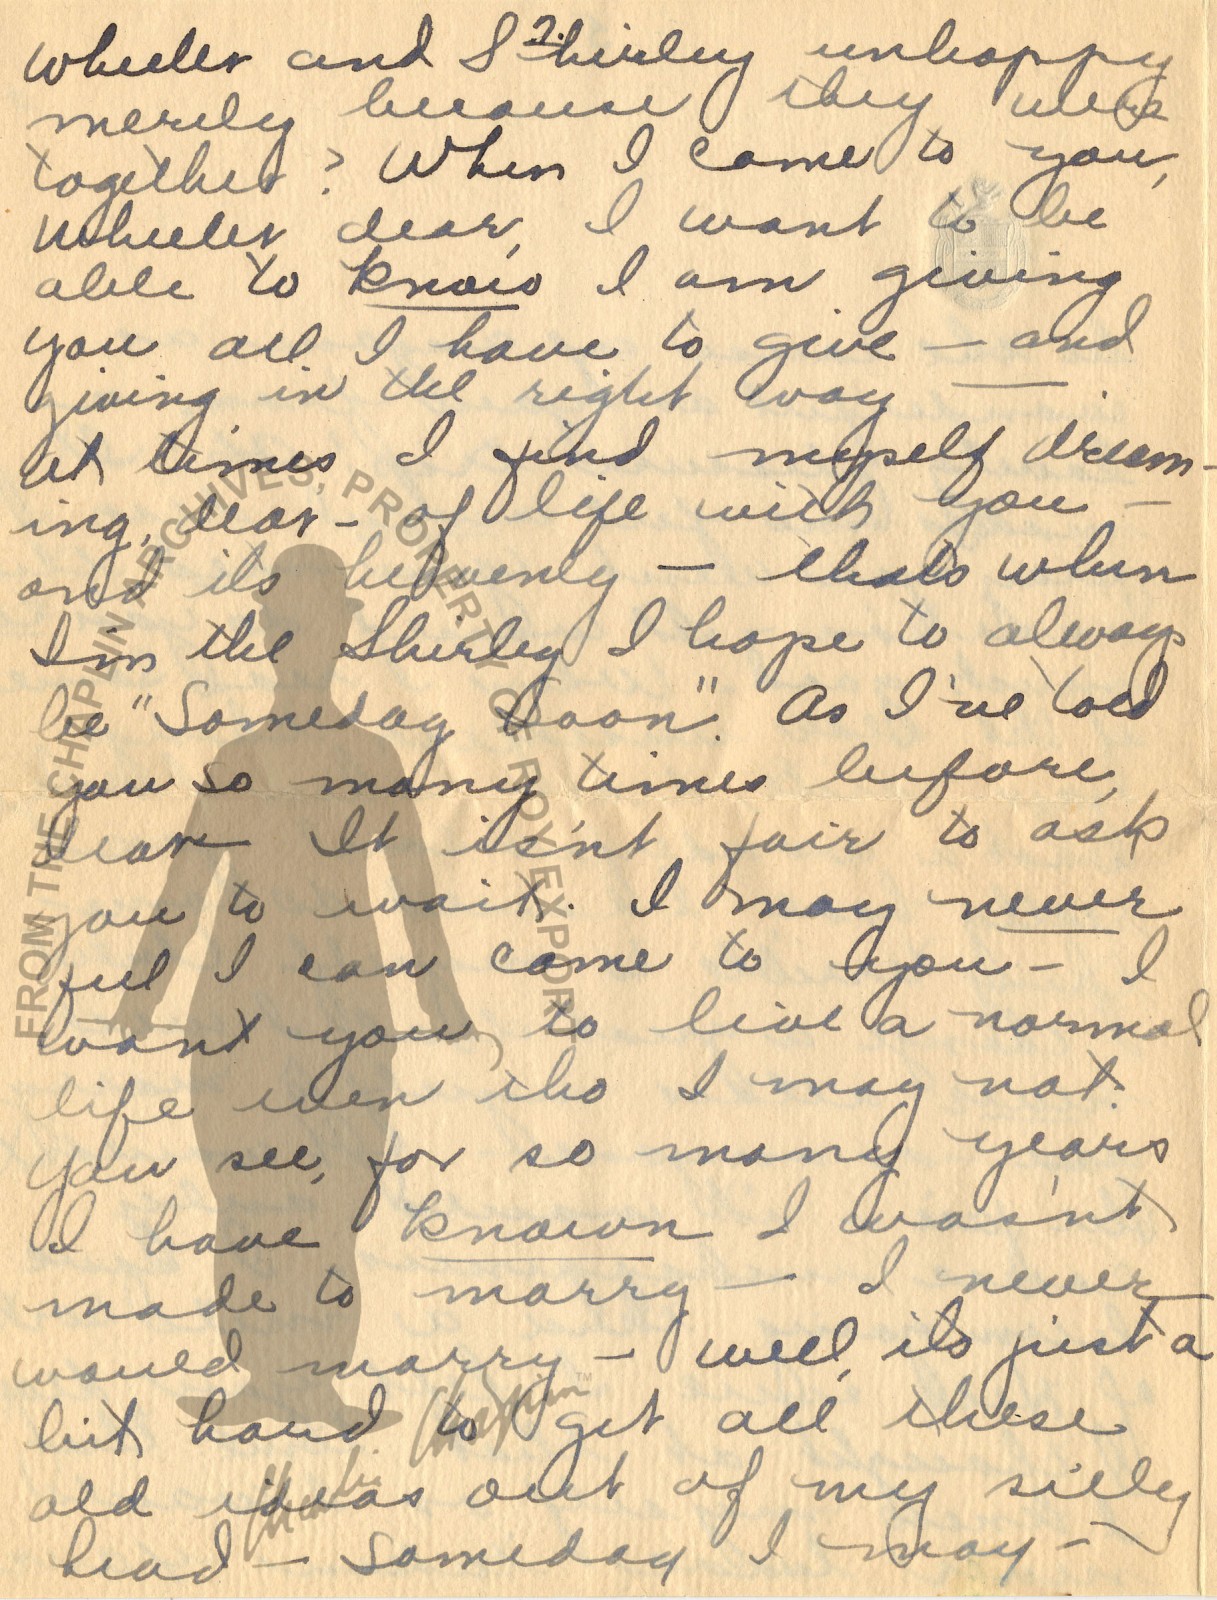 2.
Wheeler and Shirley unhappy
merely because they were
together? When I come to you,
Wheeler dear, I want to be
able to know I am giving
you all I have to give — and
giving in the right way — .
At times I find myself dream-
ing, dear – of life with you –
and its heavenly — thats when
I'm the Shirley I hope to always
be "Someday Soon". As I've told
you so many times before,
dear It isn't fair to ask
you to wait. I may never
feel I can come to you – I
want you to live a normal
life even tho I may not.
You see, for so many years
I have known I wasn't
made to marry — I never
would marry – well, its just a
bit hard to get all these
old ideas out of my silly
head — Someday I may –
FROM THE CHAPLIN ARCHIVES, PROPERTY OF ROY EXPORT
Charlie Chaplin ™